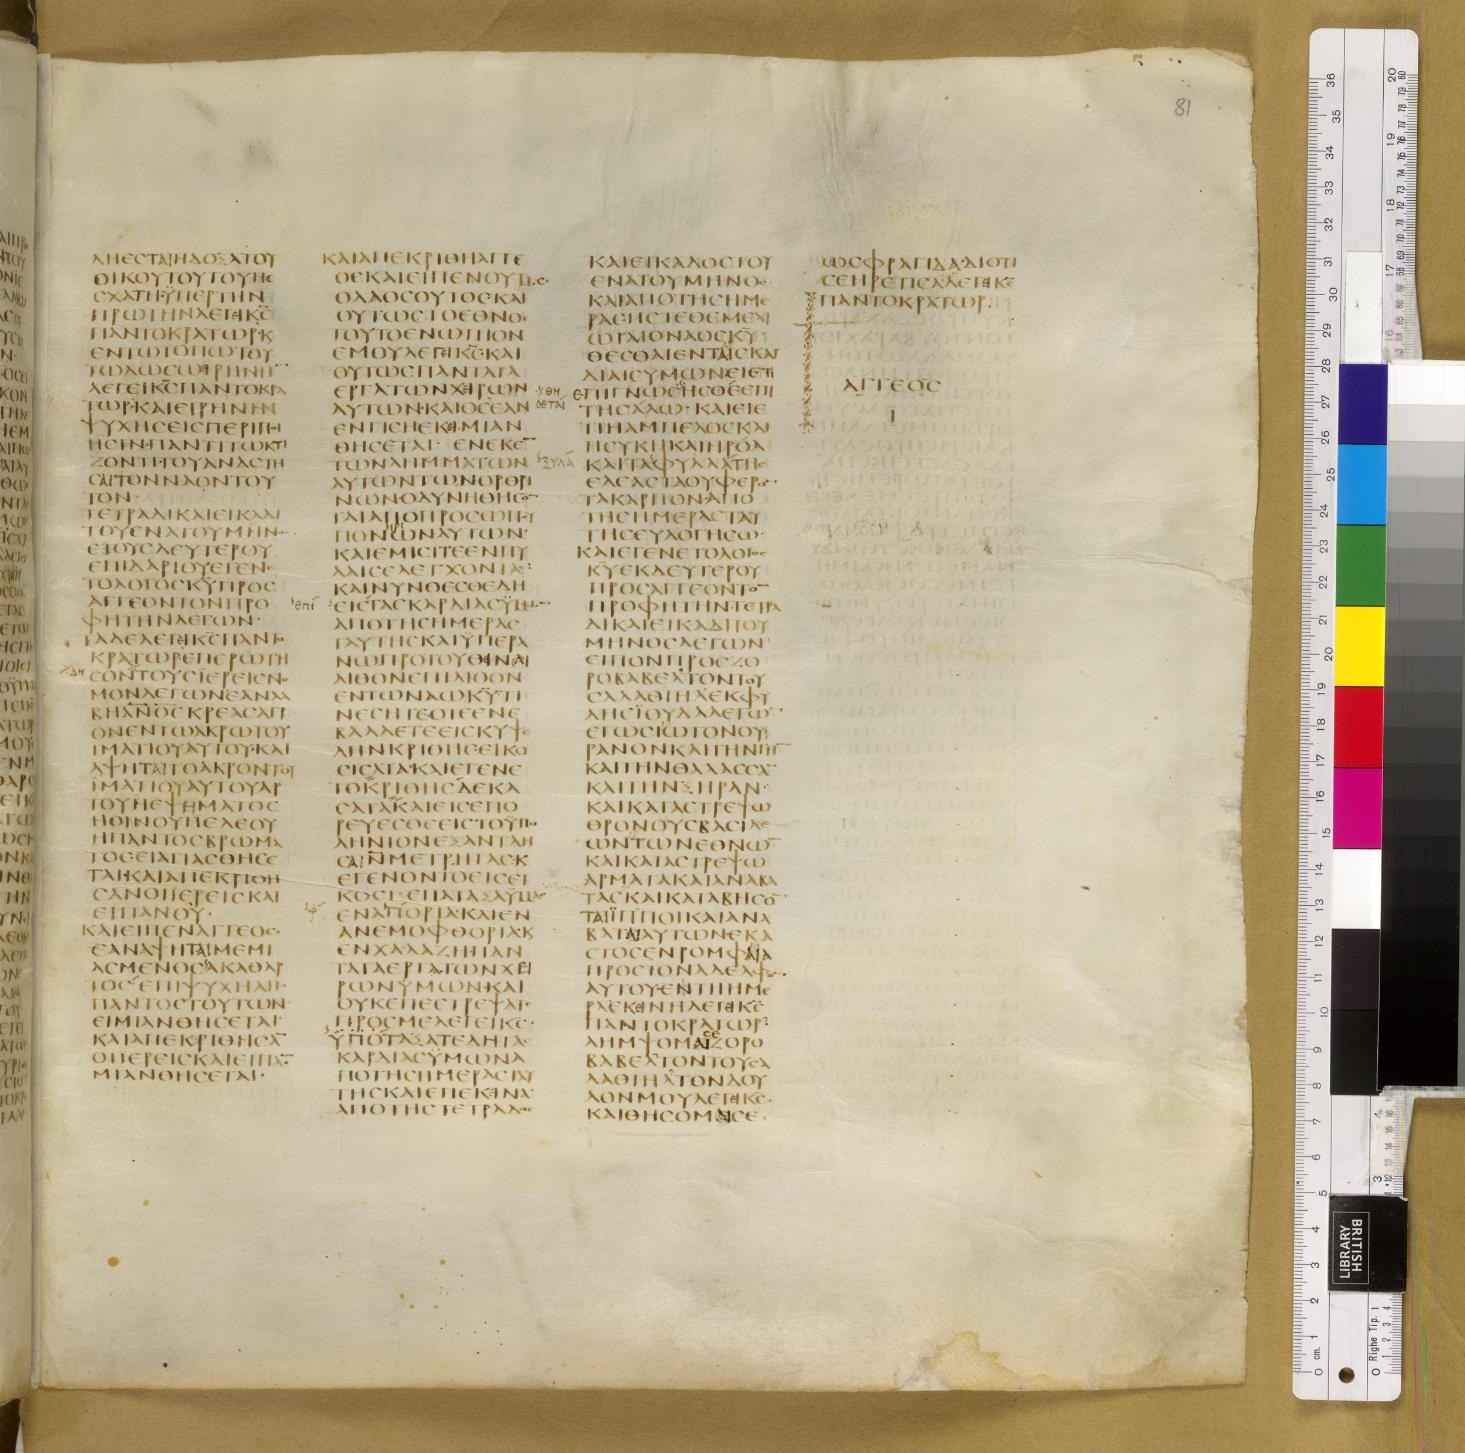 81
ΛΗΕϹΤΑΙΗΔΟΞΑΤΟΥ
ΟΙΚΟΥΤΟΥΤΟΥΗΕ
ϹΧΑΤΗΫΠΕΡΤΗΝ
ΠΡΩΤΗΝΛΕΓΕΙΚϹ
ΠΑΝΤΟΚΡΑΤΩΡΚ
ΕΝΤΩΤΟΠΩΤΟΥ
ΤΩΔΩϹΩΕΙΡΗΝΗ
ΛΕΓΕΙΚϹΠΑΝΤΟΚΡΑ
ΤΩΡ·ΚΑΙΕΙΡΗΝΗΝ
ΨΥΧΗϹΕΙϹΠΕΡΙΠΟΙ
ΗϹΙΝΠΑΝΤΙΤΩΚΤΙ
ΖΟΝΤΙΤΟΥΑΝΑϹΤΗ
ϹΑΙΤΟΝΝΑΟΝΤΟΥ
ΤΟΝ
ΤΕΤΡΑΔΙΚΑΙΕΙΚΑΔΙ
ΤΟΥΕΝΑΤΟΥΜΗΝΟϹ
ΕΤΟΥϹΔΕΥΤΕΡΟΥ
ΕΠΙΔΑΡΙΟΥΕΓΕΝΕ
ΤΟΛΟΓΟϹΚΥΠΡΟϹ
ΑΓΓΕΟΝΤΟΝΠΡΟ
ΦΗΤΗΝΛΕΓΩΝ·
ΤΑΔΕΛΕΓΕΙΚϹΠΑΝΤΟ
ΚΡΑΤΩΡΕΠΕΡΩΤΗ
ϹΟΝΤΟΥϹΪΕΡΕΙϹΝΟ
ΜΟΝΛΕΓΩΝΕΑΝΛΑ
ΒΗΑΝΟϹΚΡΕΑϹΑΓΙ
ΟΝΕΝΤΩΑΚΡΩΤΟΥ
ΪΜΑΤΙΟΥΑΥΤΟΥΚΑΙ
ΑΨΗΤΑΙΤΟΑΚΡΟΝΤΟΥ
ΪΜΑΤΙΟΥΑΥΤΟΥΑΡ
ΤΟΥΗΕΨΗΜΑΤΟϹ
ΗΟΙΝΟΥΗΕΛΕΟΥ
ΗΠΑΝΤΟϹΒΡΩΜΑ
ΤΟϹΕΙΑΓΙΑϹΘΗϹΕ
ΤΑΙΚΑΙΑΠΕΚΡΙΘΗ
ϹΑΝΟΙΪΕΡΕΙϹΚΑΙ
ΕΙΠΑΝΟΥ·
ΚΑΙΕΙΠΕΝΑΓΓΕΟϹ
ΕΑΝΑΨΗΤΑΙΜΕΜΙ
ΑϹΜΕΝΟϹΑΚΑΘΑΡ
ΤΟϹΕΠΙΨΥΧΗΑΠΟ
ΠΑΝΤΟϹΤΟΥΤΩΝ
ΕΙΜΙΑΝΘΗϹΕΤΑΙ
ΚΑΙΑΠΕΚΡΙΘΗϹΑ
ΟΙΪΕΡΕΙϹΚΑΙΕΙΠΑ
ΜΙΑΝΘΗϹΕΤΑΙ·
ΚΑΙΑΠΕΚΡΙΘΗΑΓΓΕ
ΟϹΚΑΙΕΙΠΕΝΟΥΤΩϹ
ΟΛΑΟϹΟΥΤΟϹΚΑΙ
ΟΥΤΩϹΤΟΕΘΝΟϹ
ΤΟΥΤΟΕΝΩΠΙΟΝ
ΕΜΟΥΛΕΓΕΙΚϹΚΑΙ
ΟΥΤΩϹΠΑΝΤΑΤΑ
ΕΡΓΑΤΩΝΧΕΙΡΩΝ
ΑΥΤΩΝ·ΚΑΙΟϹΕΑΝ
ΕΝΓΙϹΗΕΚΕΙΜΙΑΝ
ΘΗϹΕΤΑΙ· ΕΝΕΚΕ
ΤΩΝΛΗΜΜΑΤΩΝ
ΑΥΤΩΝΤΩΝΟΡΘΡΙ
ΝΩΝΟΔΥΝΗΘΗϹΟ
ΤΑΙΑΠΟΠΡΟϹΩΠΟΥ
ΠΟΝΩΝΑΥΤΩΝ
ΚΑΙΕΜΙϹΙΤΕΕΝΠΥ
ΛΑΙϹΕΛΕΓΧΟΝΤΑϹ
ΚΑΙΝΥΝΘΕϹΘΕΔΗ
ΕΙϹΤΑϹΚΑΡΔΙΑϹΫΜΩ
ΑΠΟΤΗϹΗΜΕΡΑϹ
ΤΑΥΤΗϹΚΑΙΫΠΕΡΑ
ΝΩΠΡΟΤΟΥΘΕΙΝΑΙ
ΛΙΘΟΝΕΠΙΛΙΘΟΝ
ΕΝΤΩΝΑΩΚΥΤΙ
ΝΕϹΗΤΕΟΤΕΕΝΕ
ΒΑΛΛΕΤΕΕΙϹΚΥΨΕ
ΛΗΝΚΡΙΘΗϹΕΙΚΟ
ϹΙϹΑΤΑΚΑΙΕΓΕΝΕ
ΤΟΚΡΙΘΗϹΔΕΚΑ
ϹΑΤΑΚΑΙΕΙϹΕΠΟ
ΡΕΥΕϹΘΕΕΙϹΤΟΫΠΟ
ΛΗΝΙΟΝΕΞΑΝΤΛΗ
ϹΑΙΝΜΕΤΡΗΤΑϹΚ
ΕΓΕΝΟΝΤΟΕΙϹΕΙ
ΚΟϹΙ·ΕΠΑΤΑΞΑΫΜΑϹ
ΕΝΑΠΟΡΙΑΚΑΙΕΝ
ΑΝΕΜΟΦΘΟΡΙΑΚ
ΕΝΧΑΛΑΖΗΠΑΝ
ΤΑΤΑΕΡΓΑΤΩΝΧΕΙ
ΡΩΝΥΜΩΝΚΑΙ
ΟΥΚΕΠΕϹΤΡΕΨΑΤΕ
ΠΡΟϹΜΕΛΕΓΕΙΚϹ·
ΫΠΟΤΑΞΑΤΕΔΗΤΑϹ
ΚΑΡΔΙΑϹΫΜΩΝΑ
ΠΟΤΗϹΗΜΕΡΑϹΤΑΥ
ΤΗϹΚΑΙΕΠΕΚΕΙΝΑ
ΑΠΟΤΗϹΤΕΤΡΑΔΟϹ
ΚΑΙΕΙΚΑΔΟϹΤΟΥ
ΕΝΑΤΟΥΜΗΝΟϹ
ΚΑΙΑΠΟΤΗϹΗΜΕ
ΡΑϹΗϹΤΕΘΕΜΕΛΙ
ΩΤΑΙΟΝΑΟϹΚΥ
ΘΕϹΘΑΙΕΝΤΑΙϹΚΑΡ
ΔΙΑΙϹΥΜΩΝΕΙΕΤΙ
ΕΠΙΓΝΩϹΘΗϹΕΤΑΙΕΠΙ
ΤΗϹΑΛΩ· ΚΑΙΕΙΕ
ΤΙΗΑΜΠΕΛΟϹΚΑΙ
ΗϹΥΚΗΚΑΙΗΡΟΑ
ΚΑΙΤΑΦΥΛΛΑΤΗϹ
ΕΛΕΑϹΤΑΟΥΦΕΡΟ
ΤΑΚΑΡΠΟΝΑΠΟ
ΤΗϹΗΜΕΡΑϹΤΑΥ
ΤΗϹΕΥΛΟΓΗϹΩ·
ΚΑΙΕΓΕΝΕΤΟΛΟΓΟϹ
ΚΥΕΚΔΕΥΤΕΡΟΥ
ΠΡΟϹΑΓΓΕΟΝΤΟ
ΠΡΟΦΗΤΗΝΤΕΤΡΑ
ΔΙΚΑΙΕΙΚΑΔΙΤΟΥ
ΜΗΝΟϹΛΕΓΩΝ
ΕΙΠΟΝΠΡΟϹΖΟ
ΡΟΒΑΒΕΛΤΟΝΤΟΥ
ϹΑΛΑΘΙΗΛΕΚΦΥ
ΛΗϹΪΟΥΔΑΛΕΓΩ
ΕΓΩϹΙΩΤΟΝΟΥ
ΡΑΝΟΝΚΑΙΤΗΝΓΗ
ΚΑΙΤΗΝΘΑΛΑϹϹΑ
ΚΑΙΤΗΝΞΗΡΑΝ·
ΚΑΙΚΑΤΑϹΤΡΕΨΩ
ΘΡΟΝΟΥϹΒΑϹΙΛΕ
ΩΝΤΩΝΕΘΝΩ
ΚΑΙΚΑΤΑϹΤΡΕΨΩ
ΑΡΜΑΤΑΚΑΙΑΝΑΒΑ
ΤΑϹΚΑΙΚΑΤΑΒΗϹΟ
ΤΑΙΪΠΠΟΙΚΑΙΑΝΑ
ΒΑΤΑΙΑΥΤΩΝΕΚΑ
ϹΤΟϹΕΝΡΟΜΦΑΙΑ
ΠΡΟϹΤΟΝΑΔΕΛΦΟ
ΑΥΤΟΥ·ΕΝΤΗΗΜΕ
ΡΑΕΚΕΙΝΗΛΕΓΕΙΚϹ
ΠΑΝΤΟΚΡΑΤΩΡ
ΛΗΜΨΟΜΑΙΖΟΡΟ
ΒΑΒΕΛΤΟΝΤΟΥϹΑ
ΛΑΘΙΗΛΤΟΝΔΟΥ
ΛΟΝΜΟΥΛΕΓΕΙΚϹ
ΚΑΙΘΗϹΟΜΑΙϹΕ
ΩϹϹΦΡΑΓΙΔΑΔΙΟΤΙ
ϹΕΗΡΕΤΙϹΑΛΕΓΕΙΚϹ
ΠΑΝΤΟΚΡΑΤΩΡ:
ΑΓΓΕΟϹ
Ι